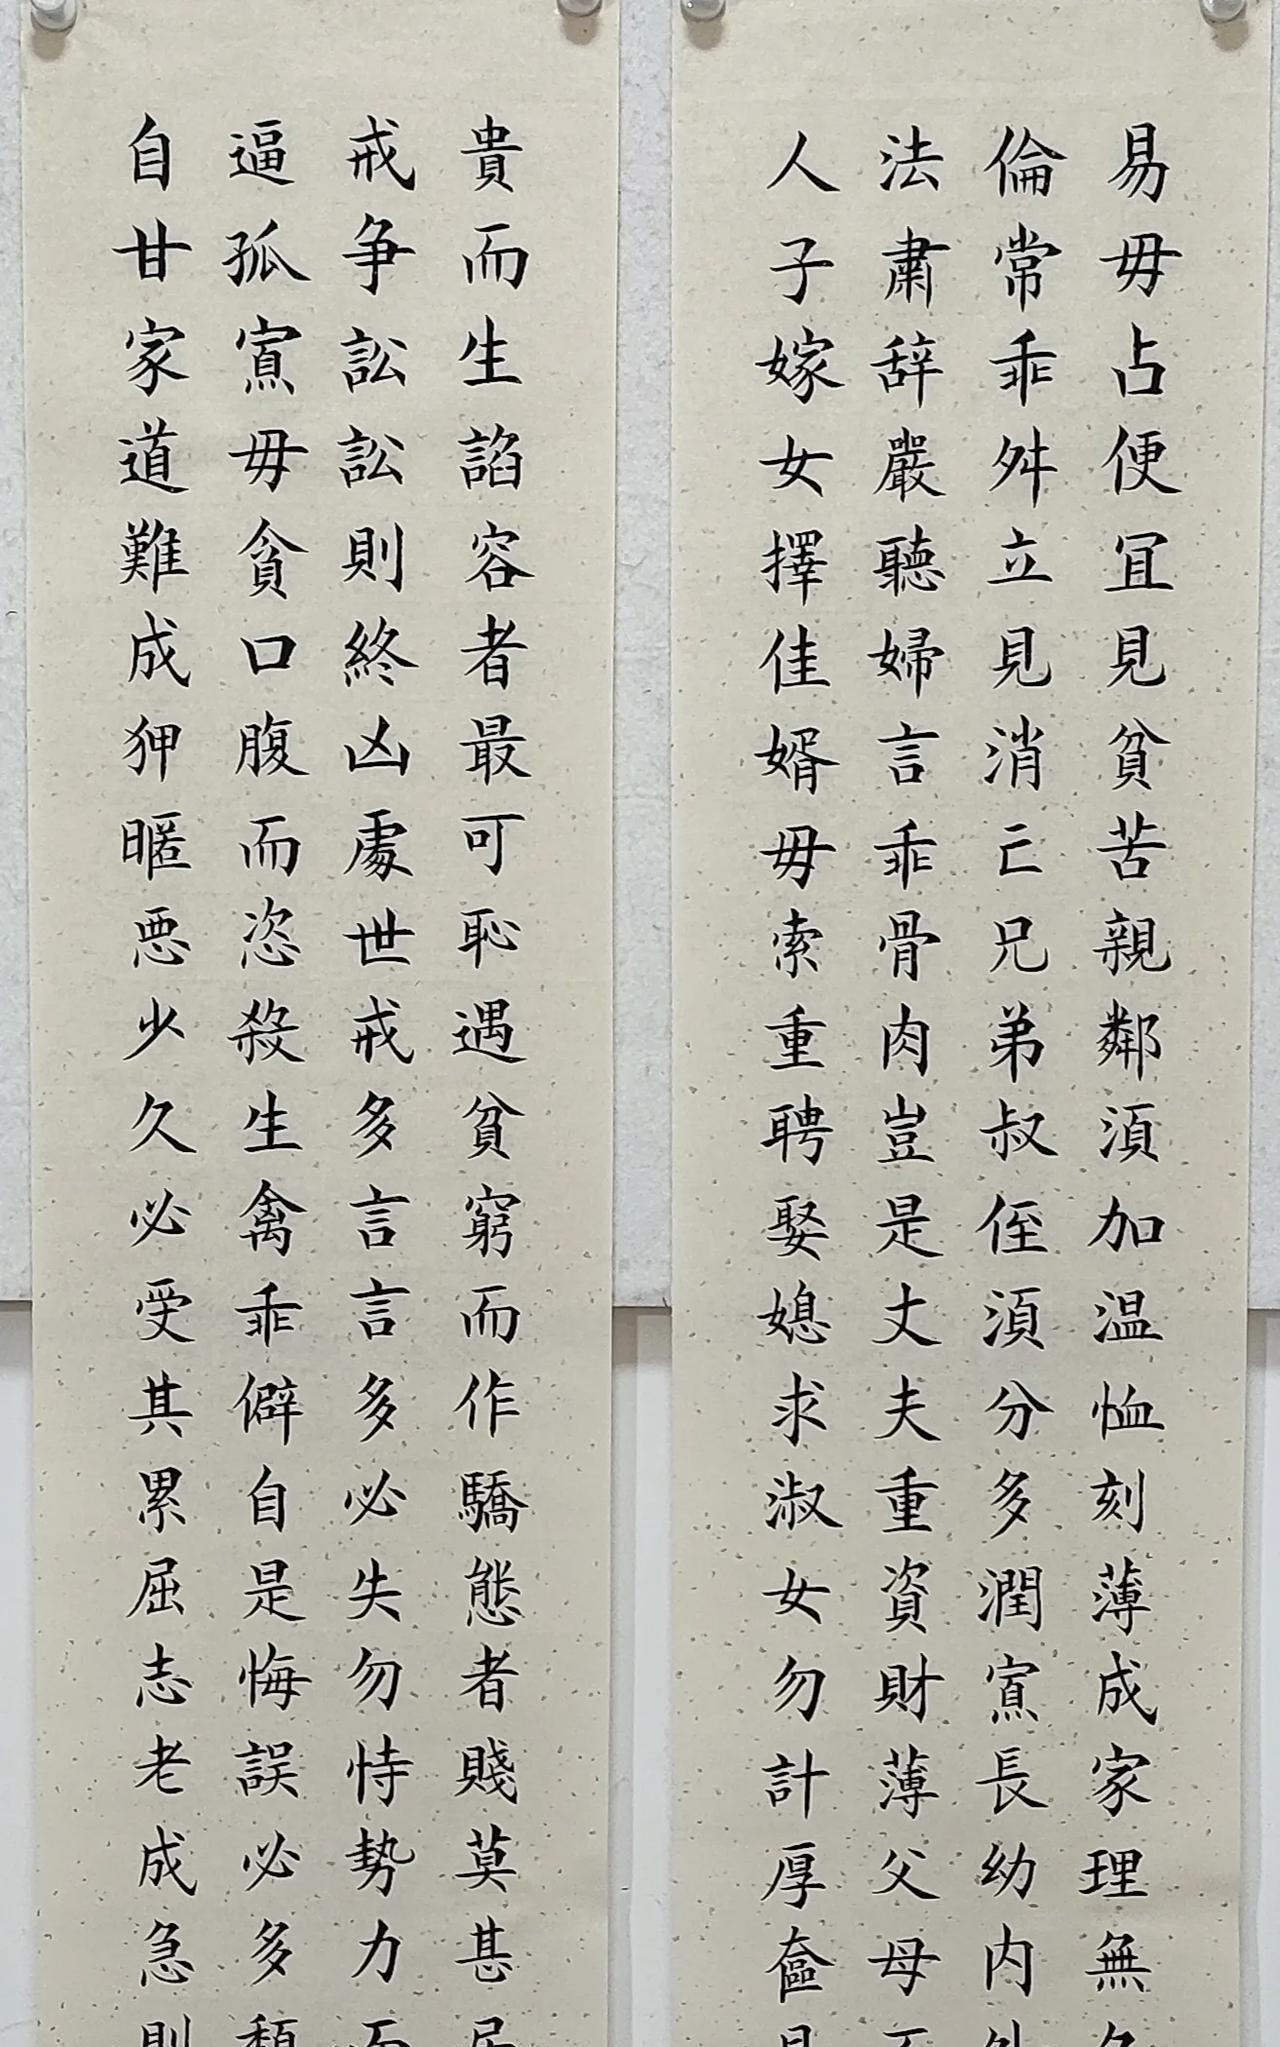 易毋占便冝見貧苦親鄰湏加温恤刻薄成家理無久
倫常乖舛立見消亡兄弟叔侄湏分多潤寡長幼内外
法肅辞嚴聽婦言乖骨肉豈是丈夫重資財薄父母不
人子嫁女擇佳婿毋索重聘娶媳求淑女勿計厚奩見
貴而生諂容者最可恥遇貧窮而作驕態者賤莫甚居
戒争訟訟則終凶處世戒多言言多必失勿恃勢力而
逼孤寡毋貪口腹而恣殺生禽乖僻自是悔誤必多頹
自甘家道難成狎暱悪少久必受其累屈志老成急則